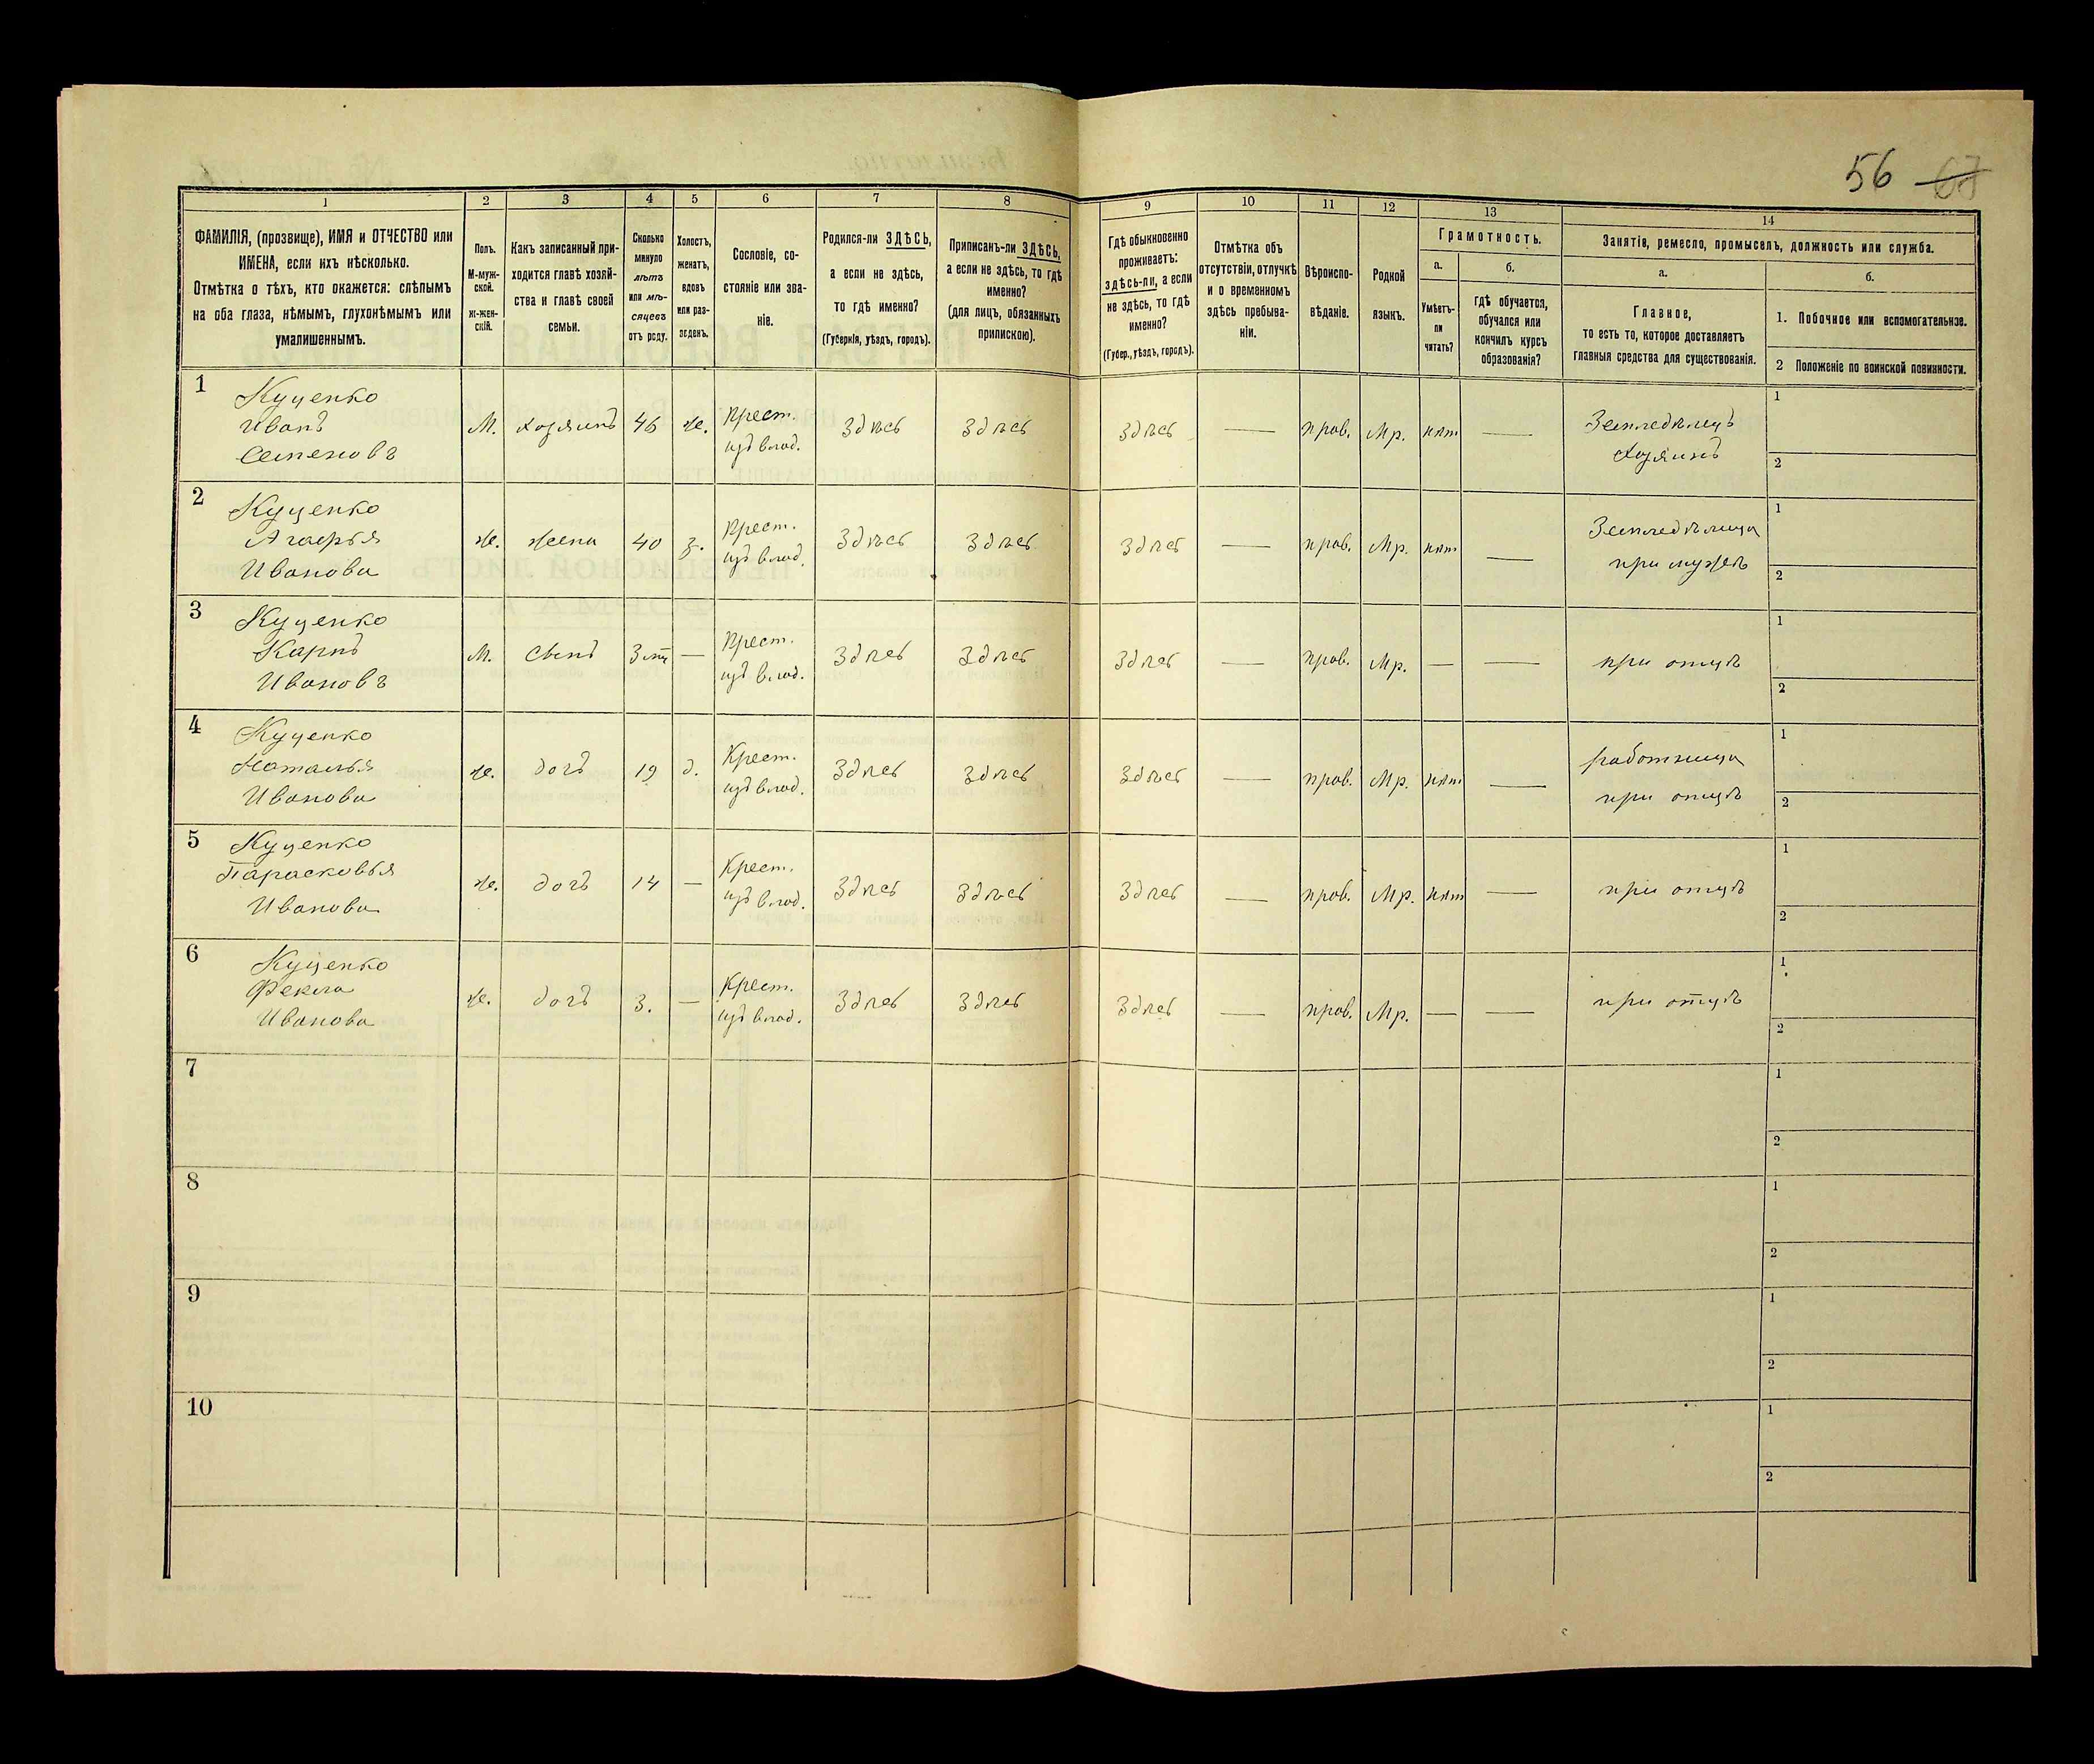 56 67
1
2
3
4
5
6
7
8
9
10
11
12
13
14
ФАМИЛІЯ, (прозвище), ИМЯ и ОТЧЕСТВО или
ИМЕНА, если ихъ нѣсколько.
Отмѣтка о тѣхъ, кто окажется: слѣпымъ
на оба глаза, нѣмымъ, глухонѣмымъ или
умалишеннымъ.
Полъ.
М-муж-
ской.
Ж-жен-
скій.
Какъ записанный при-
ходится главѣ хозяй-
ства и главѣ своей
семьи.
Сколько
минуло
лѣтъ
или мѣ-
сяцевъ
отъ роду.
Холостъ,
женатъ,
вдовъ
или раз-
веденъ.
Сословіе, со-
стояніе или зва-
ніе.
Родился-ли ЗДѢСЬ,
а если не здѣсь,
то гдѣ именно?
(Губернія, уѣздъ, городъ).
Приписанъ-ли ЗДѢСЬ,
а если не здѣсь, то гдѣ
именно?
(для лицъ, обязанныхъ
припискою).
Гдѣ обыкновенно
проживаетъ:
здѣсь-ли, а если
не здѣсь, то гдѣ
именно?
(Губер., уѣздъ, городъ).
Отмѣтка объ
отсутствіи, отлучкѣ
и о временномъ
здѣсь пребыва-
ніи.
Вѣроиспо-
вѣданіе.
Родной
языкъ.
Грамотность.
а.
Умѣетъ-
ли
читать?
б.
гдѣ обучается,
обучался или
кончилъ курсъ
образованія?
Занятіе, ремесло, промыселъ, должность или служба.
а.
Главное,
то есть то, которое доставляетъ
главныя средства для существованія.
б.
1. Побочное или вспомогательное.
2 Положеніе по воинской повинности.
1 Куценко
Иванъ
Семеновъ
М. хозяинъ 46 ж. Крест.
изъ влад.
Здѣсь Здѣсь Здѣсь — прав. Мр. нѣт —
Земледѣлецъ
Хозяинъ
1
2
2 Куценко
Агафья
Иванова
ж. жена 40 з. Крест.
изъ влад.
Здѣсь Здѣсь Здѣсь — прав. Мр. нѣт —
Земледѣлица
при мужѣ
1
2
3 Куценко
Карпъ
Ивановъ
М. сынъ — Крест.
изъ влад.
Здѣсь Здѣсь Здѣсь — прав. Мр. — —
при отцѣ
1
2
4 Куценко
Наталья
Иванова
ж. дочъ 19 д. Крест.
изъ влад.
Здѣсь Здѣсь Здѣсь — прав. Мр. нѣт —
работница
при отцѣ
1
2
5 Куценко
Парасковья
Иванова
ж. дочъ 14 — Крест.
изъ влад.
Здѣсь Здѣсь Здѣсь — прав. Мр. нѣт —
при отцѣ
1
2
6 Куценко
Фекла
Иванова
ж. дочъ 3. — Крест.
изъ влад.
Здѣсь Здѣсь Здѣсь — прав. Мр. — —
при отцѣ
1
2
7
1
2
8
1
2
9
1
2
10
1
2